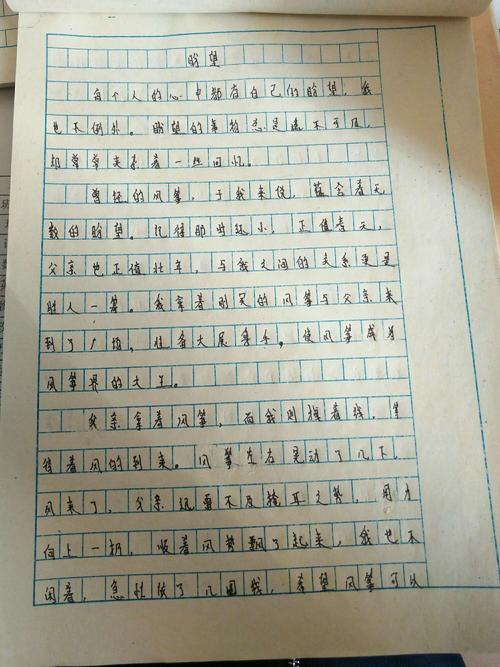 盼望
每个人的心中都有自己的盼望，我
也不例外。盼望的事物总是遥不可及，
却常常夹杂着一些回忆。
曾经的风筝，于我来说，蕴含着无
数的盼望。记得那时还小，正值春天，
父亲也正值壮年，与我之间的关系更是
胜人一筹。我拿着刚买的风筝与父亲来
到了广场，准备大展身手。使风筝成为
风筝界的大王。
父亲拿着风筝，而我则握着线，等
待着风的到来。风筝左右晃动了几下，
风来了，父亲迅雷不及掩耳之势，用力
向上一扔，顺着风势飘了起来，我也不
闲着，急忙放了几圈线，希望风筝可以